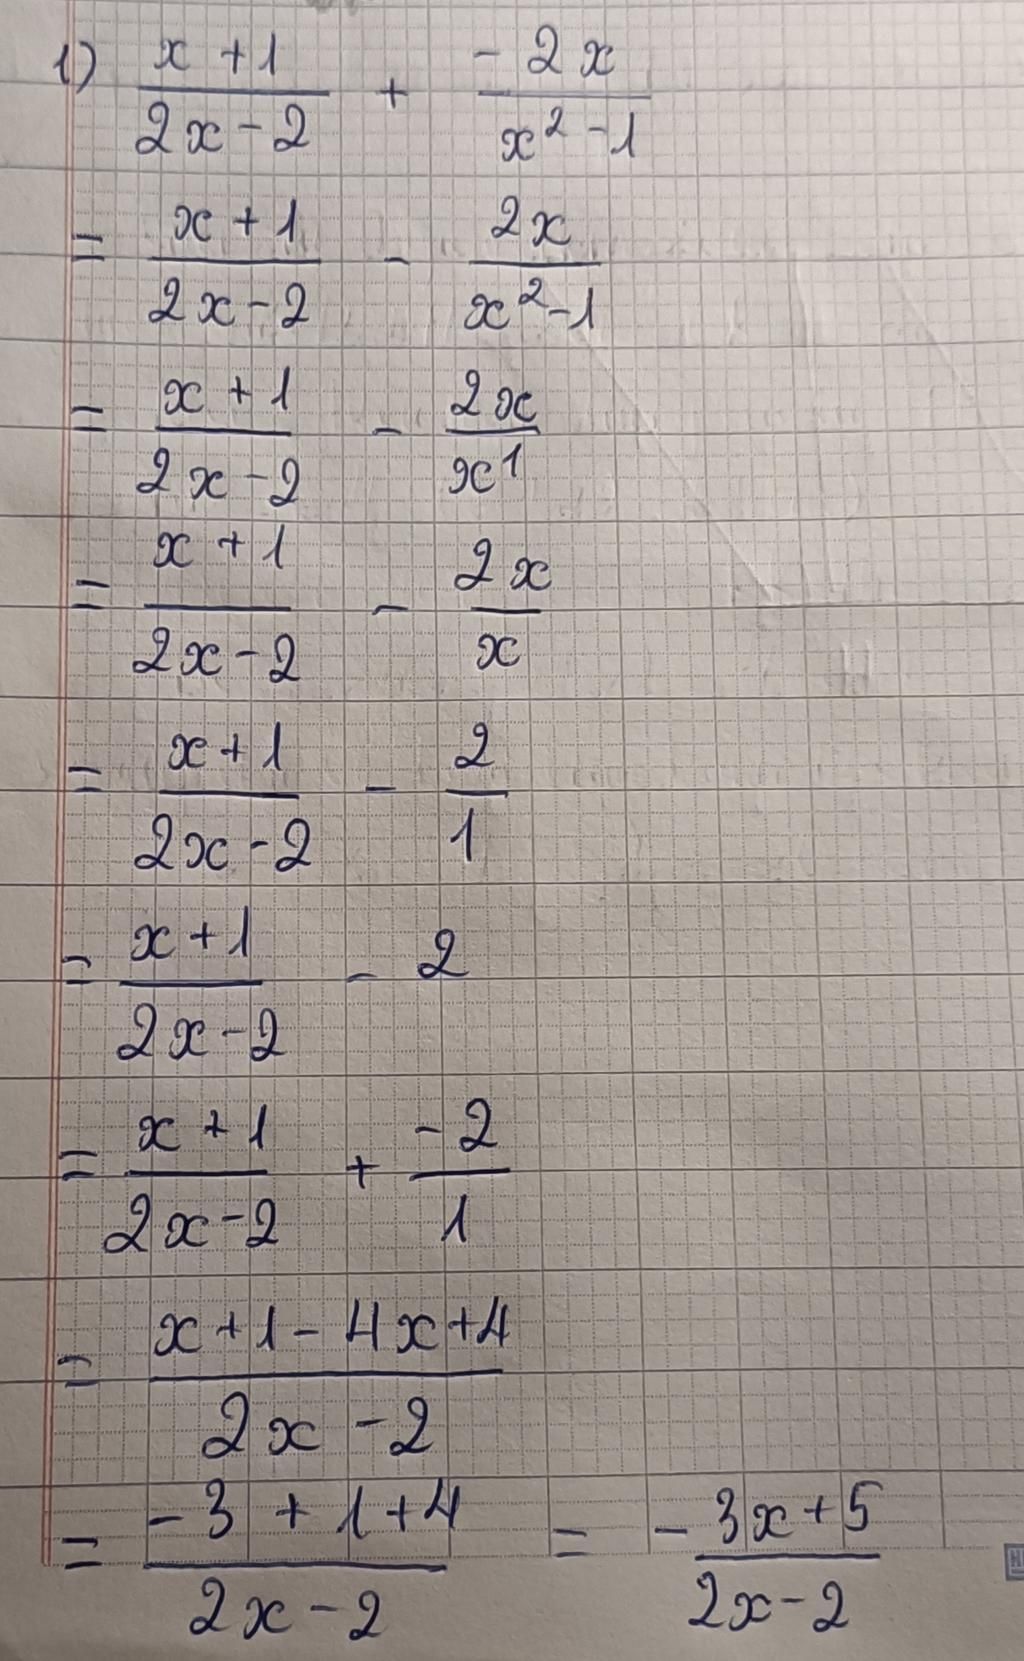 1) (x + 1)/(2x - 2) + (- 2x)/(x² - 1)
= (x + 1)/(2x - 2) - (2x)/(x² - 1)
= (x + 1)/(2x - 2) - (2x)/(x¹)
= (x + 1)/(2x - 2) - (2x)/(x)
= (x + 1)/(2x - 2) - 2/1
= (x + 1)/(2x - 2) - 2
= (x + 1)/(2x - 2) + (- 2)/1
= (x + 1 - 4x + 4)/(2x - 2)
= (- 3 + 1 + 4)/(2x - 2) = - (3x + 5)/(2x - 2)